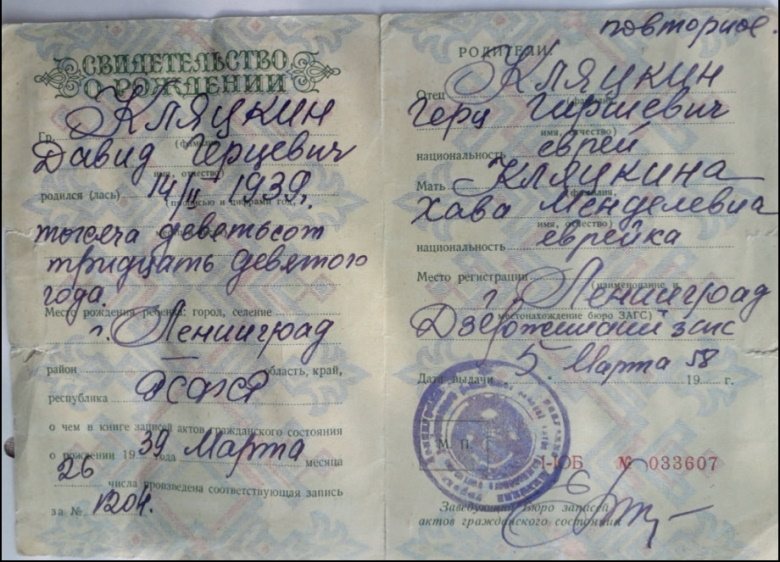 СВИДЕТЕЛЬСТВО
О РОЖДЕНИИ
Гр. Кляцкин
(фамилия)
Давид Герцевич
имя, отчество)
родился (лась) 14/II 1939г.
(прописью и цифрами год,
тысяча девятьсот
тридцать девятого
года.
Место рождения ребенка: город, селение
г. Ленинград
район — область, край,
республика РСФСР
о чем в книге записей актов гражданского состояния
о рождении 1939 года Марта месяца
26 числа произведена соответствующая запись
за № 1204.
повторное.
РОДИТЕЛИ:
Отец Кляцкин
(фамилия,
Герц Гиршевич
имя, отчество)
национальность еврей
Мать Кляцкина
(фамилия,
Хава Менделевна
имя, отчество)
национальность еврейка
Место регистрации (наименование и
г. Ленинград
местонахождение бюро ЗАГС)
Дзержинский загс
Дата выдачи 5 Марта 1958 г.
М. П.
I-ЮБ № 033607
Заведующий Бюро записей
актов гражданского состояния